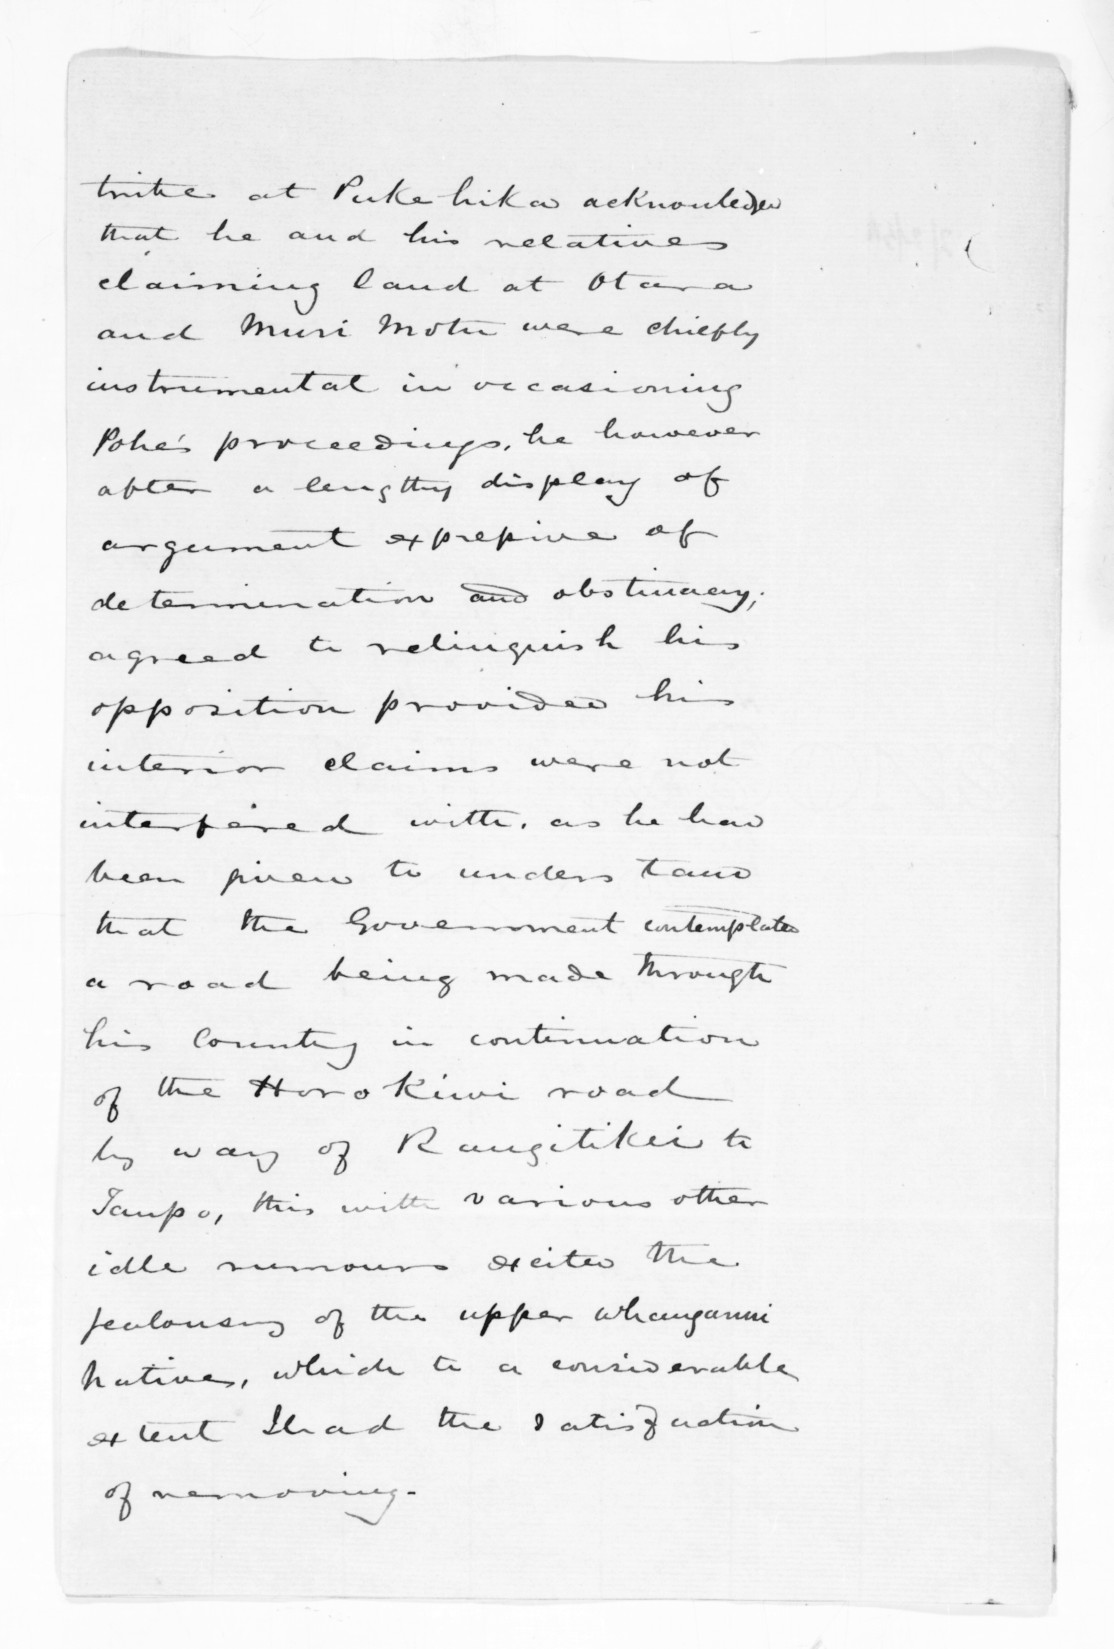 tribe at Pukehika acknowledged
that he and his relatives
claiming land at Otara
and Muri Motu were chiefly
instrumental in occasioning
Pohe's proceedings, he however
after a lengthy display of
argument expressive of
determination and obstinacy,
agreed to relinquish his
opposition provided his
interior claims were not
interfered with, as he had
been given to understand
that the Government contemplated
a road being made through
his Country in continuation
of the Horokiwi road
by way of Rangitikei to
Taupo, this with various other
idle rumours excited the
jealousy of the upper Whanganui
natives, which to a considerable
extent I had the satisfaction
of removing.